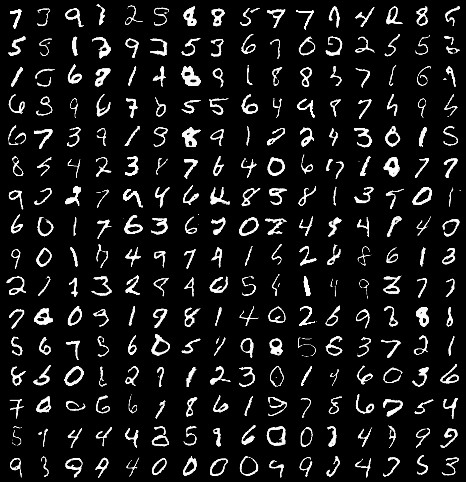 7 3 9 1 2 5 8 8 5 9 7 1 4 2 8 5
5 5 1 3 9 3 5 3 6 7 0 2 2 5 5 3
1 5 6 8 1 4 8 9 1 8 8 3 7 1 6 9
6 3 9 6 7 8 5 5 6 4 9 8 7 5 9 5
6 7 3 9 1 9 8 9 1 2 2 4 3 0 1 5
8 5 4 2 3 8 7 6 4 0 6 7 1 4 7 7
9 2 2 7 9 4 6 4 8 5 8 1 3 5 0 1
6 0 1 7 6 3 6 7 0 2 4 5 4 8 4 0
9 0 1 4 9 7 9 1 6 2 8 8 6 1 3
2 1 1 3 2 8 4 0 5 6 1 4 9 3 7 7
7 6 0 9 1 9 8 1 4 0 2 6 9 3 8 8
5 6 7 5 6 0 5 4 9 8 5 6 3 7 2 1
8 5 0 8 2 7 1 2 3 0 1 9 6 0 3 6
7 0 0 6 6 9 8 6 1 9 7 8 6 7 5 4
5 9 4 4 4 2 5 9 6 0 0 3 4 7 9 9
9 3 9 4 4 0 0 0 0 9 9 3 4 7 5 3